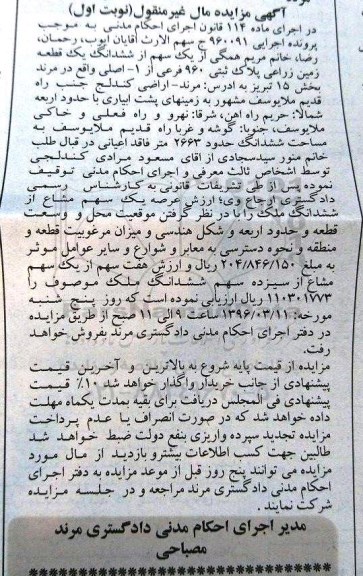 آگهی مزایده مال غیرمنقول(نوبت اول)
در اجرای ماده ۱۱۴ قانون اجرای احکام مدنی به موجب
پرونده اجرایی ۹۶۰۰۹۱ ج سهم الارث آقایان ایوب، رحمان،
رضا، خانم مریم همگی از یک سهم از ششدانگ یک قطعه
زمین زراعی پلاک ثبتی ۹۶۰ فرعی از ۱-اصلی واقع در مرند
بخش ۱۵ تبریز به ادرس: مرند-اراضی کندلج جنب راه
قدیم ملایوسف مشهور به زمینهای پشت ابیاری با حدود اربعه
شمالا: حریم راه اهن، شرقا: نهرو و راه فعلی و خاکی
ملایوسف، جنوبا: گوشه و غربا راه قدیم ملایوسف به
مساحت ششدانگ حدود ۲۶۶۳ متر فاقد اعیانی در قبال طلب
خانم منور سیدسجادی از اقای مسعود مرادی کندلجی
توسط اشخاص ثالث معرفی و اجرای احکام مدنی توقیف
نموده پس از طی تشریفات قانونی به کارشناس رسمی
دادگستری ارجاع وی؛ ارزش عرصه یک سهم مشاع از
ششدانگ ملک را با در نظر گرفتن موقعیت محل و وسعت
قطعه و حدود اربعه و شکل هندسی و میزان مرغوبیت قطعه و
منطقه و نحوه دسترسی به معابر و شوارع و سایر عوامل موثر
به مبلغ ۲۰۴/۸۴۶/۱۵۰ ریال و ارزش هفت سهم از یک سهم
مشاع از سیزده سهم ششدانگ ملک موصوف را
۱۱۰۳۰۱۷۷۳ ریال ارزیابی نموده است که روز پنج شنبه
مورخه: ۱۳۹۶/۰۳/۱۱ ساعت ۹ الی ۱۱ صبح از طریق مزایده
در دفتر اجرای احکام مدنی دادگستری مرند بفروش خواهد
رفت.
مزایده از قیمت پایه شروع به بالاترین و آخرین قیمت
پیشنهادی از جانب خریدار واگذار خواهد شد ۱۰٪ قیمت
پیشنهادی فی المجلس دریافت برای بقیه بمدت یکماه مهلت
داده خواهد شد که در صورت انصراف یا عدم پرداخت
مزایده تجدید سپرده واریزی بنفع دولت ضبط خواهد شد
طالبین جهت کسب اطلاعات بیشترو بازدید از مال مورد
مزایده می توانند پنج روز قبل از موعد مزایده به دفتر اجرای
احکام مدنی دادگستری مرند مراجعه و در جلسه مزایده
شرکت نمایند.
مدیر اجرای احکام مدنی دادگستری مرند
مصباحی